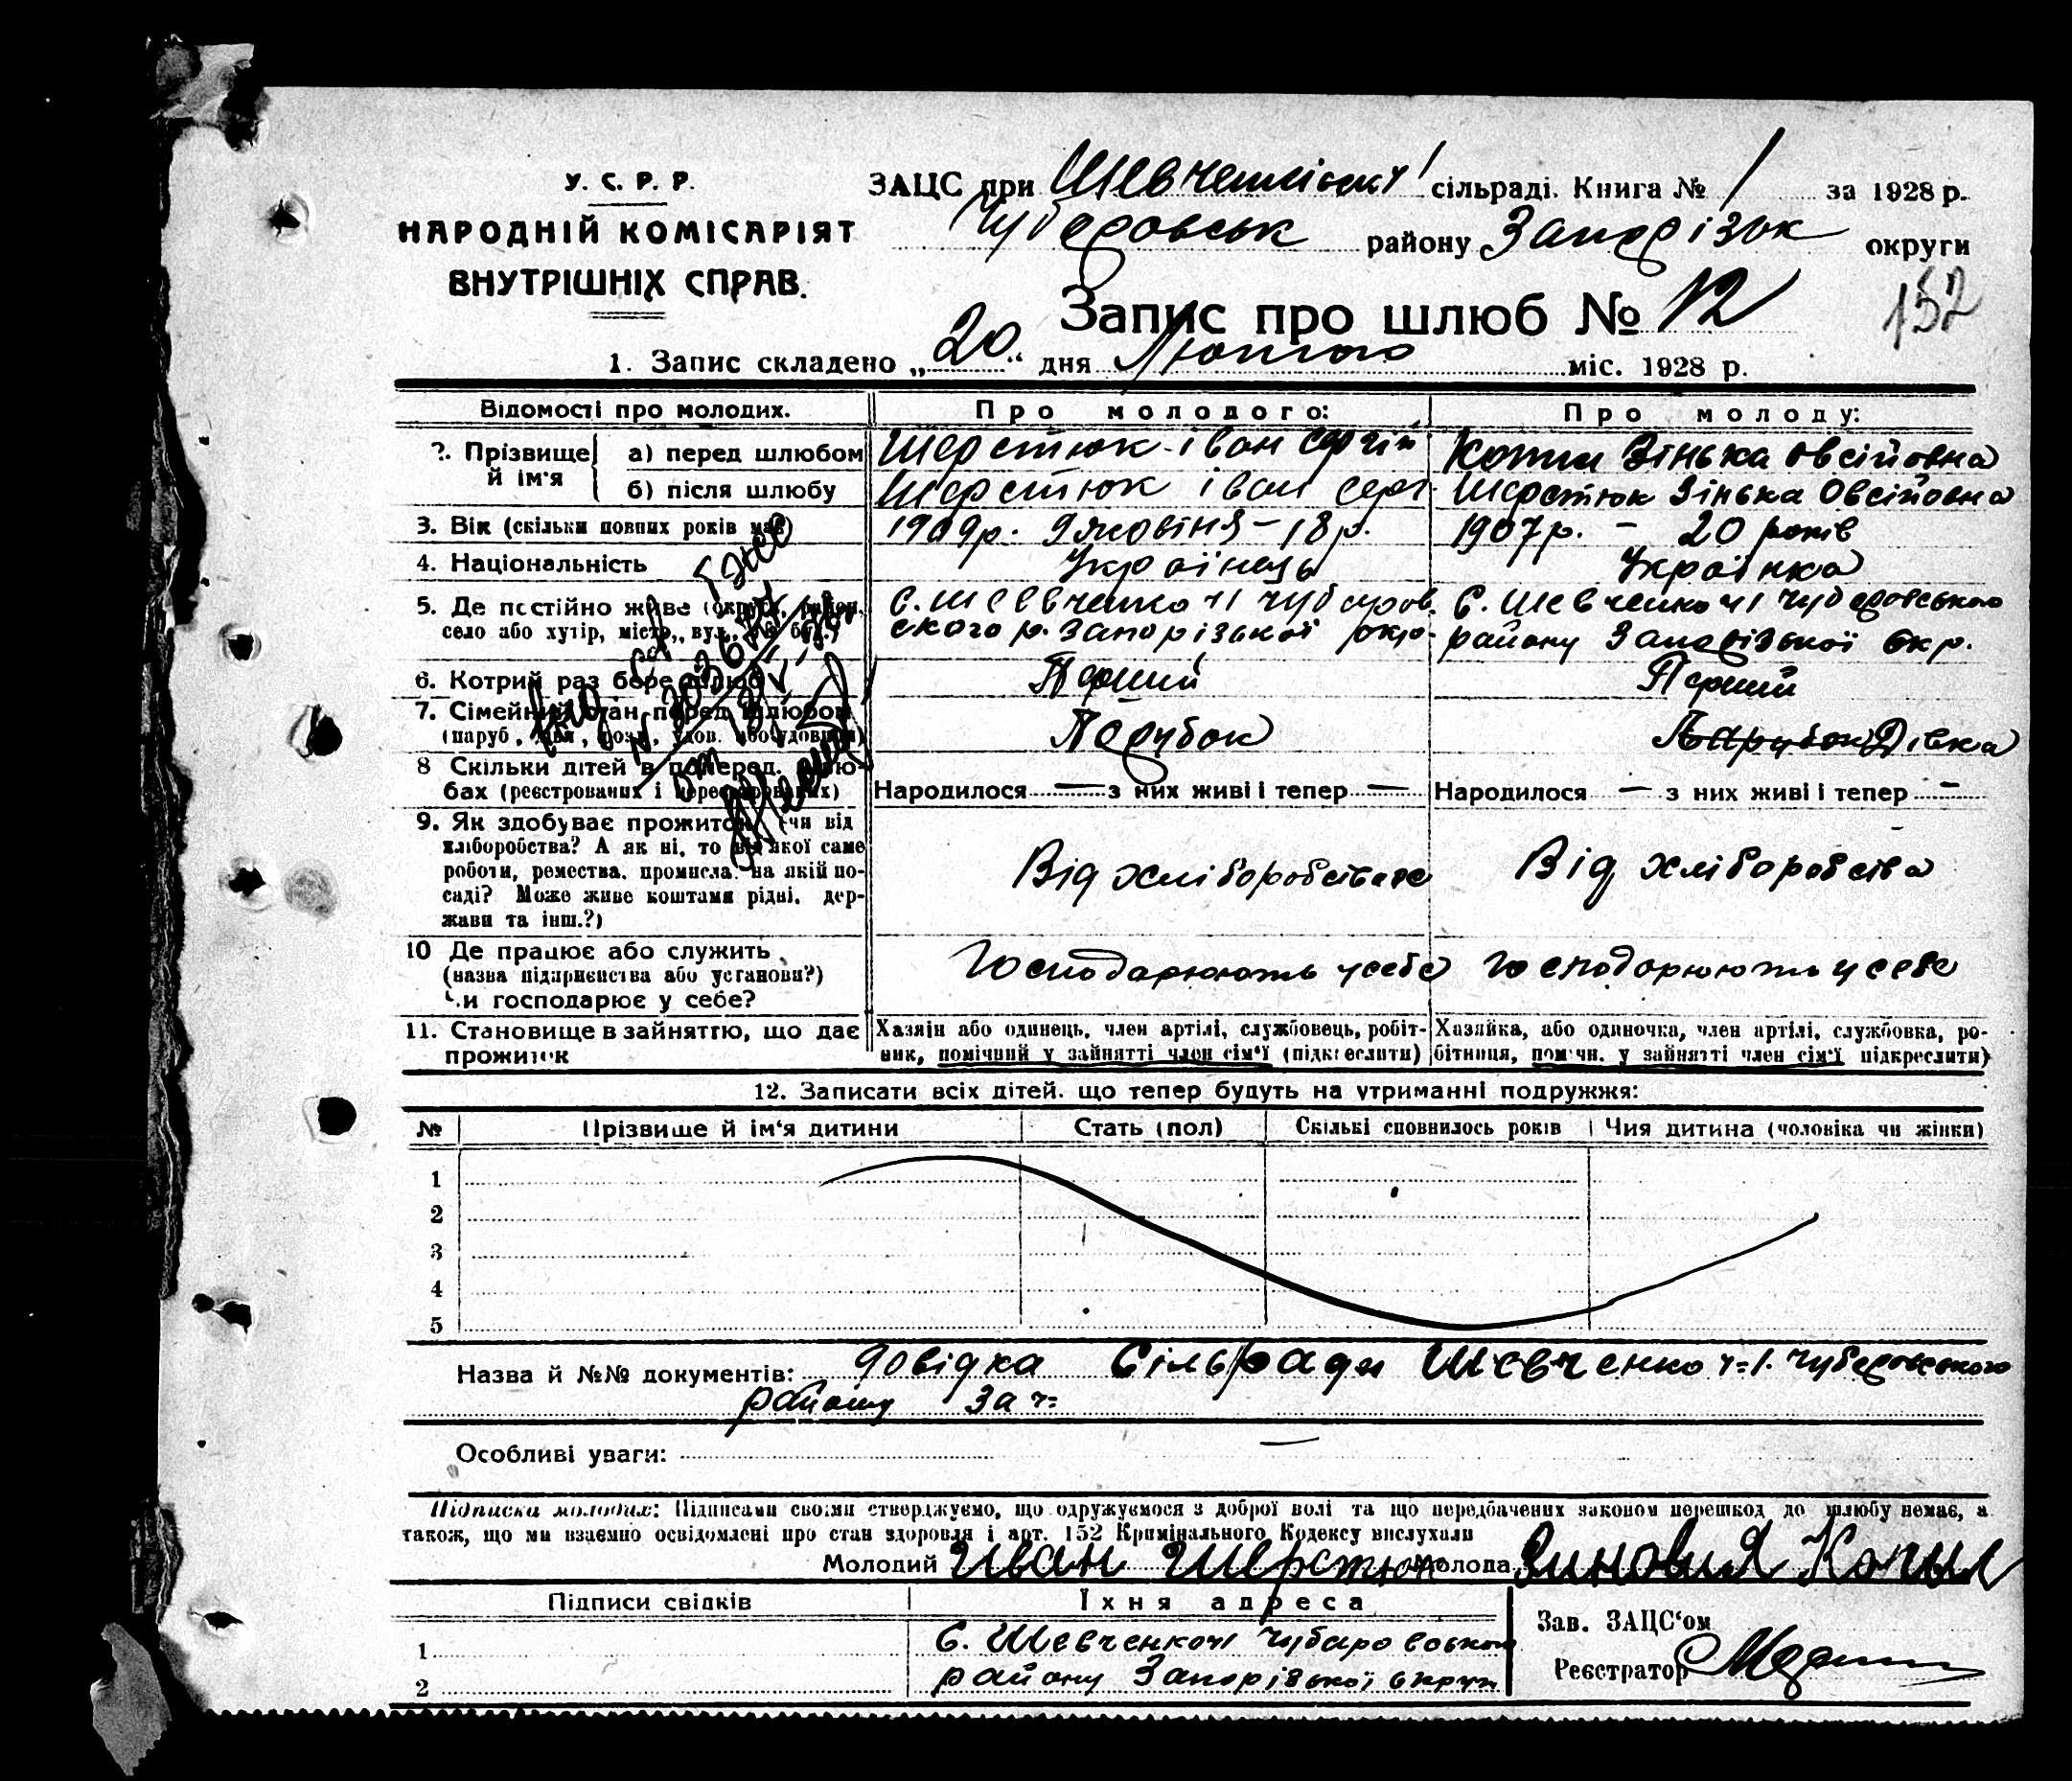 У. С. Р. Р.
НАРОДНІЙ КОМІСАРІЯТ
ВНУТРІШНІХ СПРАВ.
ЗАЦС при сільраді. Книга № 1 за 1928 р.
Чубаровськ району Запорізьк округи
Запис про шлюб № 12
152
1. Запис складено „20“ дня Лютого міс. 1928 р.
Відомості про молодих. Про молодого: Про молоду:
2. Прізвище й ім'я
а) перед шлюбом Шерстюк Іван Зінька Овсійовна
б) після шлюбу Шерстюк Іван Серг. Шерстюк Зінька Овсійовна
3. Вік (скільки повних років має) 1909р. 9 жовтня – 18 р. 1907 р. – 20 років
4. Національність Українець Українка
5. Де постійно живе (округа, район, село або хутір, місто, вул., № буд.)
С. Шевченко ч1 Чубаров. ского р. Запорізької окр.
С. Шевченко ч1 Чубаровського району Запорізької окр.
6. Котрий раз бере шлюб Перший Перший
7. Сімейний стан перед шлюбом Парубок Парубок Дівка
(паруб., дівка, розв., удов. або удовиця)
8 Скільки дітей в поперед. шлюбах (реєстрованих і нереєстрованих) Народилося — з них живі і тепер — Народилося — з них живі і тепер —
9. Як здобуває прожиток (чи від
хліборобства? А як ні, то від якої саме
роботи, ремества, промисла, на якій по-
саді? Може живе коштами рідні, дер-
жави та інш.?)
Від хліборобства Від хліборобства
10 Де працює або служить
(назва підприємства або установи?)
Чи господарює у себе?
Господарюють у себе Господарюють у себе
11. Становище в зайняттю, що дає прожиток
Хазяїн або одинець, член артілі, службовець, робіт-
ник, помічний у зайнятті член сім'ї (підкреслити)
Хазяйка, або одиночка, член артілі, службовка, ро-
бітниця, помічн. у зайнятті член сім'ї підкреслити)
12. Записати всіх дітей, що тепер будуть на утриманні подружжя:
№ Прізвище й ім‘я дитини Стать (пол) Скількі сповнилось років Чия дитина (чоловіка чи жінки)
1
2
3
4
5
Назва й №№ документів: Довідка Сільради Шевченко ч-1. Чубаровського
району за ч-
Особливі уваги: —
Підписка молодих: Підписами своїми стверджуємо, що одружуємося з доброї волі та що передбачених законом перешкод до шлюбу немає, а
також, що ми взаємно освідомлені про стан здоровля і арт. 152 Кримінального Кодексу вислухали
Молодий Иван Шерстюк Молода Зиновия Копыл
Підписи свідків Їхня адреса
1 С. Шевченко ч1 Чубаровського
2 району Запорізької округи
Зав. ЗАЦС‘ом
Реєстратор